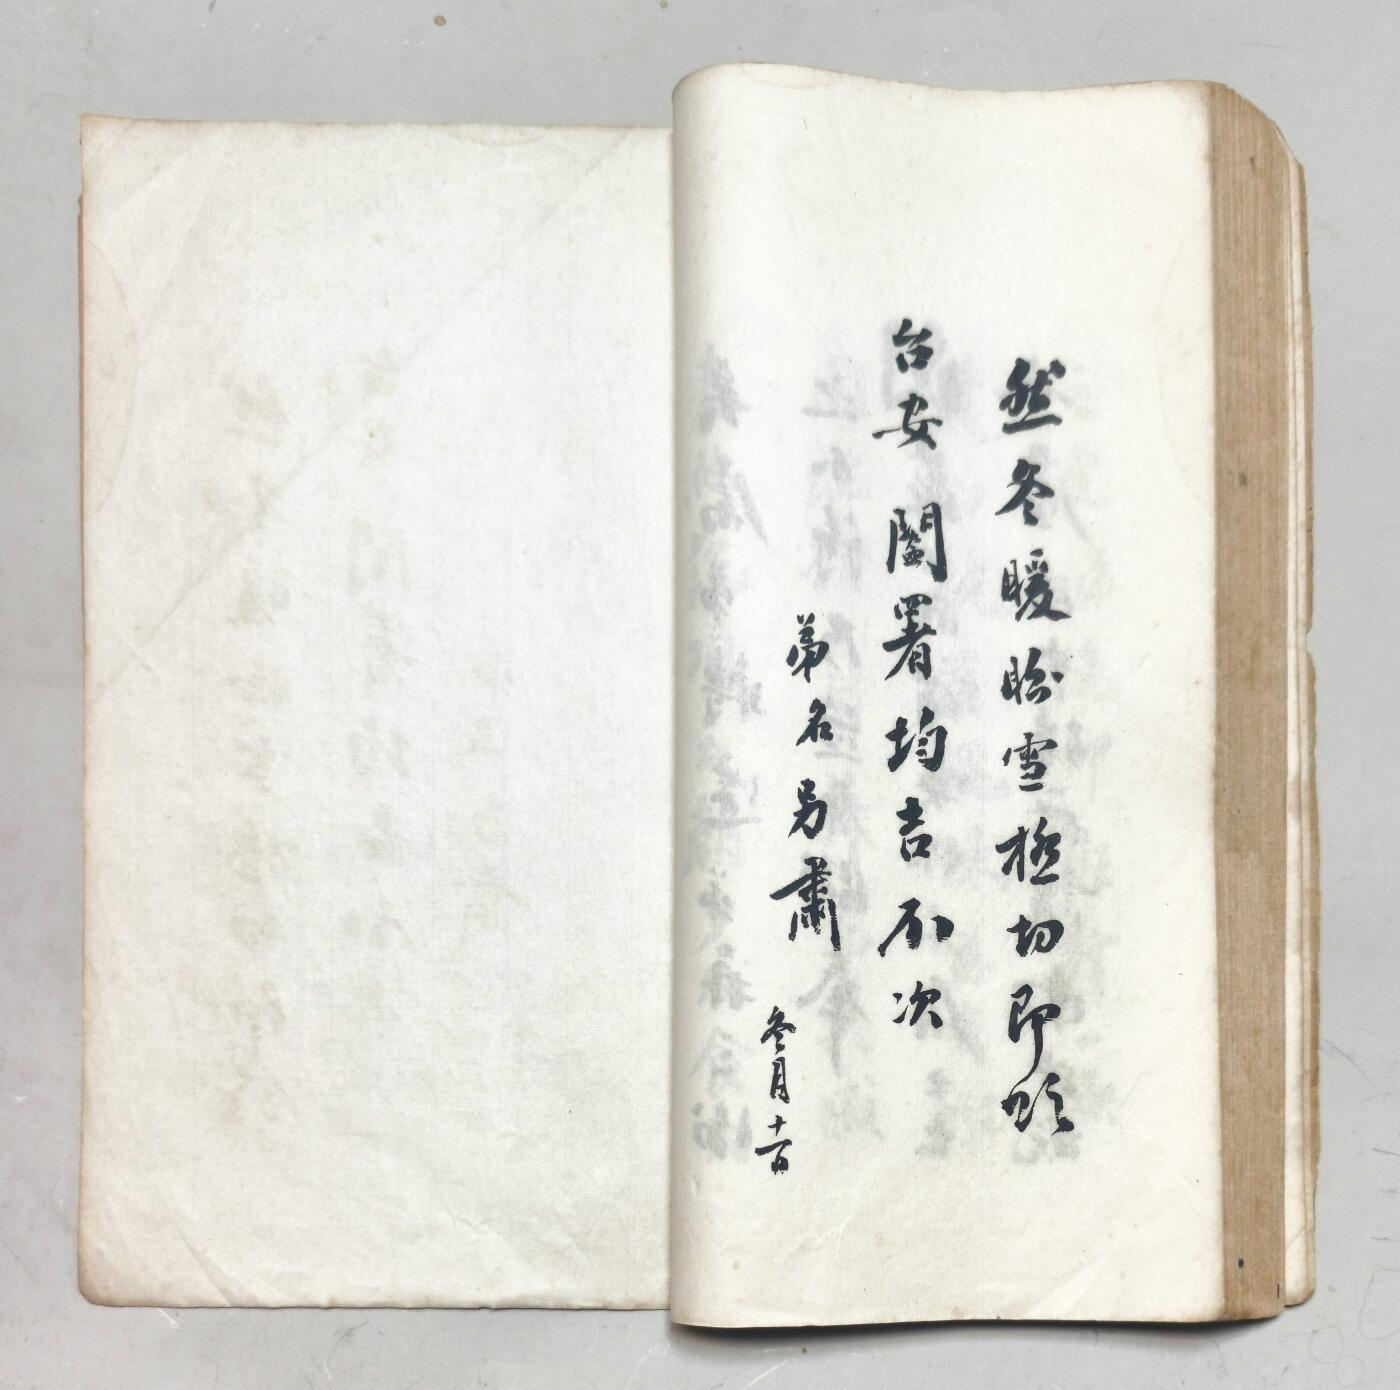 然冬暖盼雪極切即頌
台安 闔署均吉不次
弟名另肅
冬月十一日